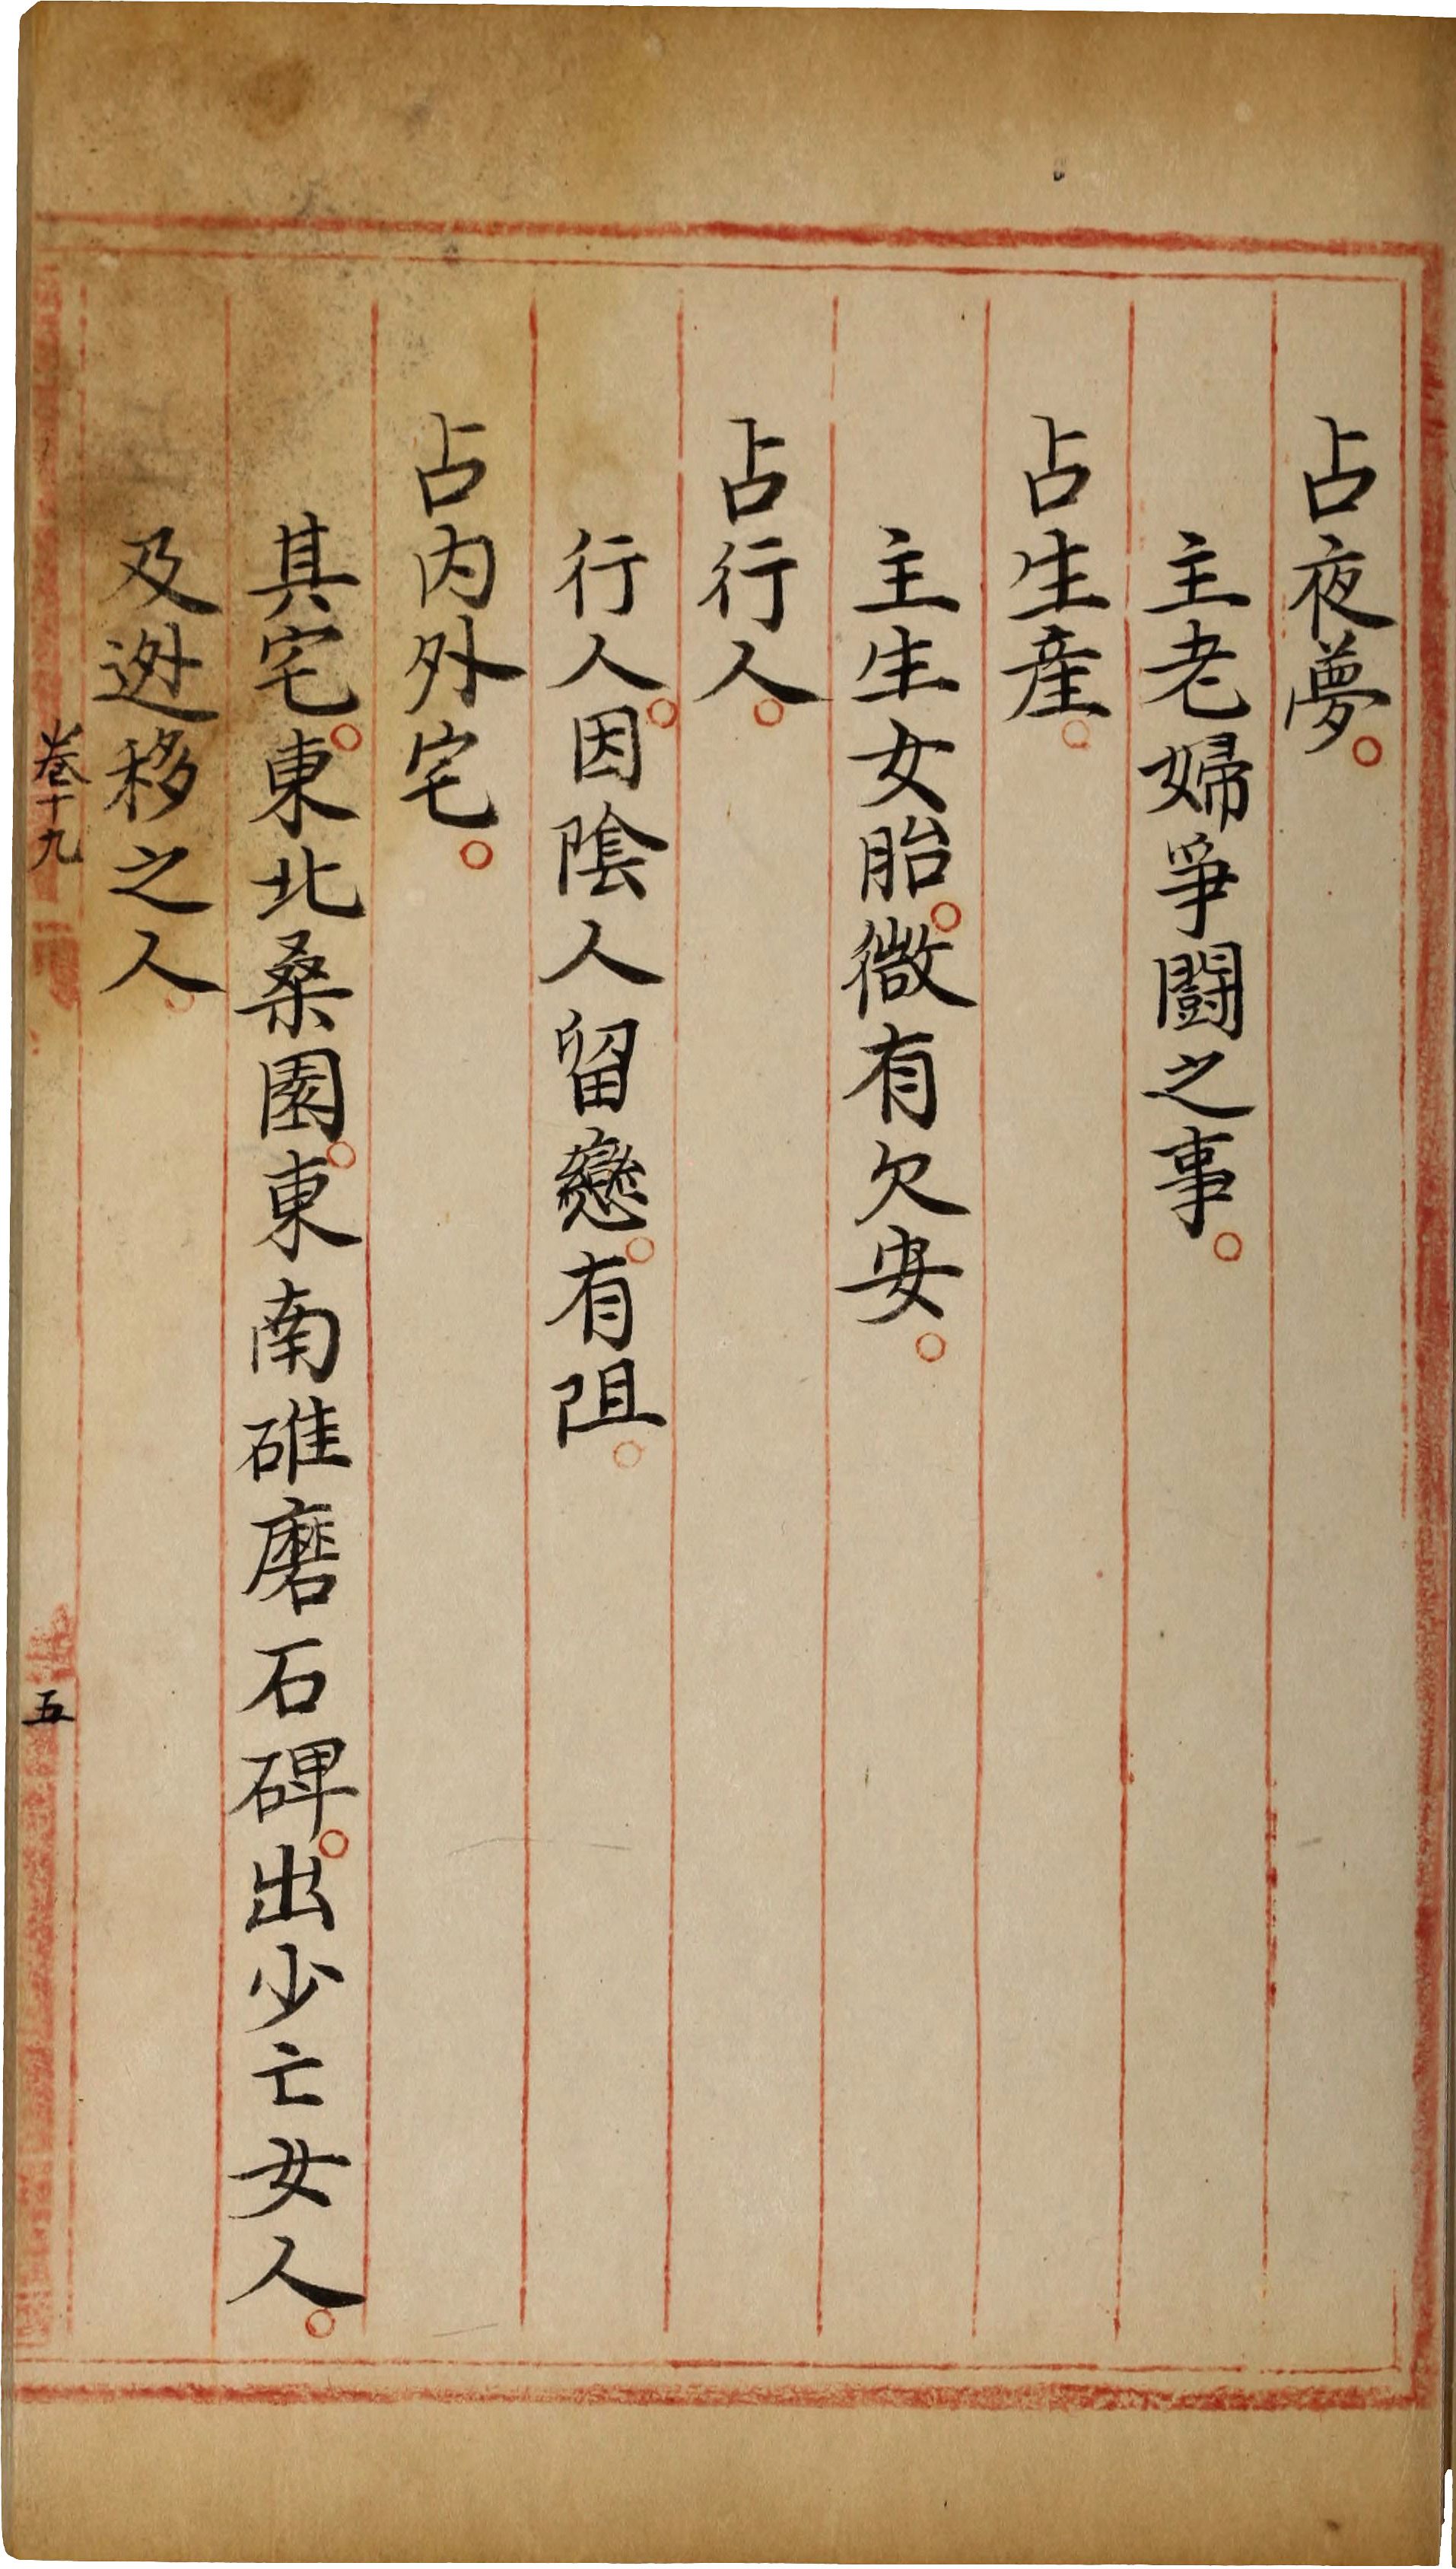 占夜夢。
主老婦爭闘之事。
占生産。
主生女胎。微有欠安。
占行人。
行人。因陰人留戀。有阻。
占內外宅。
其宅。東北桑園。東南碓磨石碑。出少亡女人。
及迯移之人。
卷十九
五